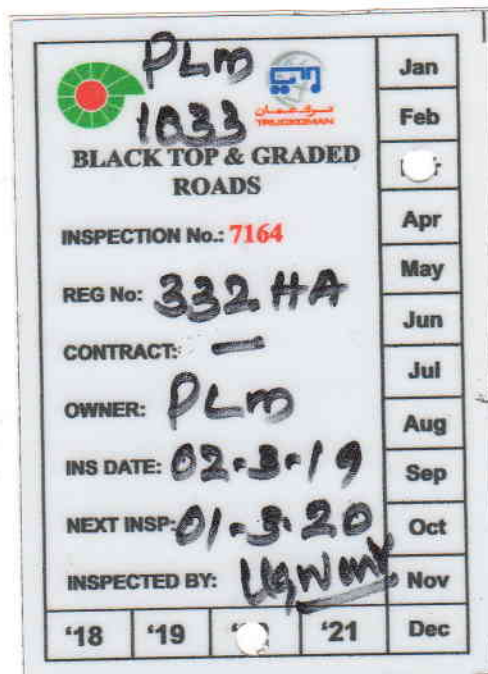 PLM
1033
تـرك عمـان
TRUCKOMAN
BLACK TOP & GRADED
ROADS
INSPECTION No.: 7164
REG No: 332 HA
CONTRACT: —
OWNER: PLM
INS DATE: 02-3-19
NEXT INSP: 01-3-20
INSPECTED BY:
Jan
Feb
Apr
May
Jun
Jul
Aug
Sep
Oct
Nov
Dec
'18
'19
'21